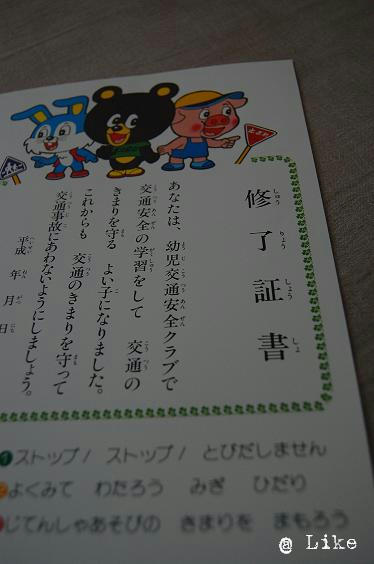 修了証書
あなたは、幼児交通安全クラブで
交通安全の学習をして　交通の
きまりを守る　よい子になりました。
これからも　交通のきまりを守って
交通事故にあわないようにしましょう。
平成　年　月　日
1 ストップ! ストップ! とびだしません
よくみて　わたろう　みぎ　ひだり
じてんしゃあそびの　きまりを　まもろう
@ Like